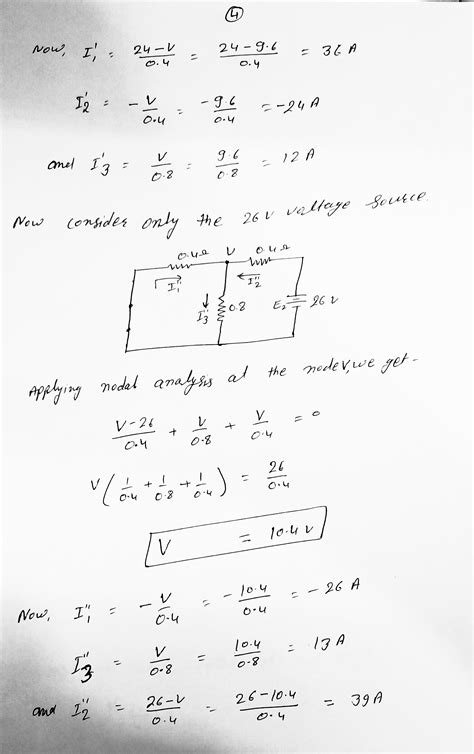 4
Now, I₁' = (24-V)/0.4 = (24-9.6)/0.4 = 36 A
I₂' = -V/0.4 = -9.6/0.4 = -24 A
and I'₃ = V/0.8 = 9.6/0.8 = 12 A
Now consider only the 26 V voltage source.
0.4Ω V 0.4Ω
I₁'' I₂''
I₃'' 0.8 E₂ 26 V
Applying nodal analysis at the node V, we get -
(V-26)/0.4 + V/0.8 + V/0.4 = 0
V(1/0.4 + 1/0.8 + 1/0.4) = 26/0.4
V = 10.4 V
Now, I₁'' = -V/0.4 = -10.4/0.4 = -26 A
I₃'' = V/0.8 = 10.4/0.8 = 13 A
and I₂'' = (26-V)/0.4 = (26-10.4)/0.4 = 39 A